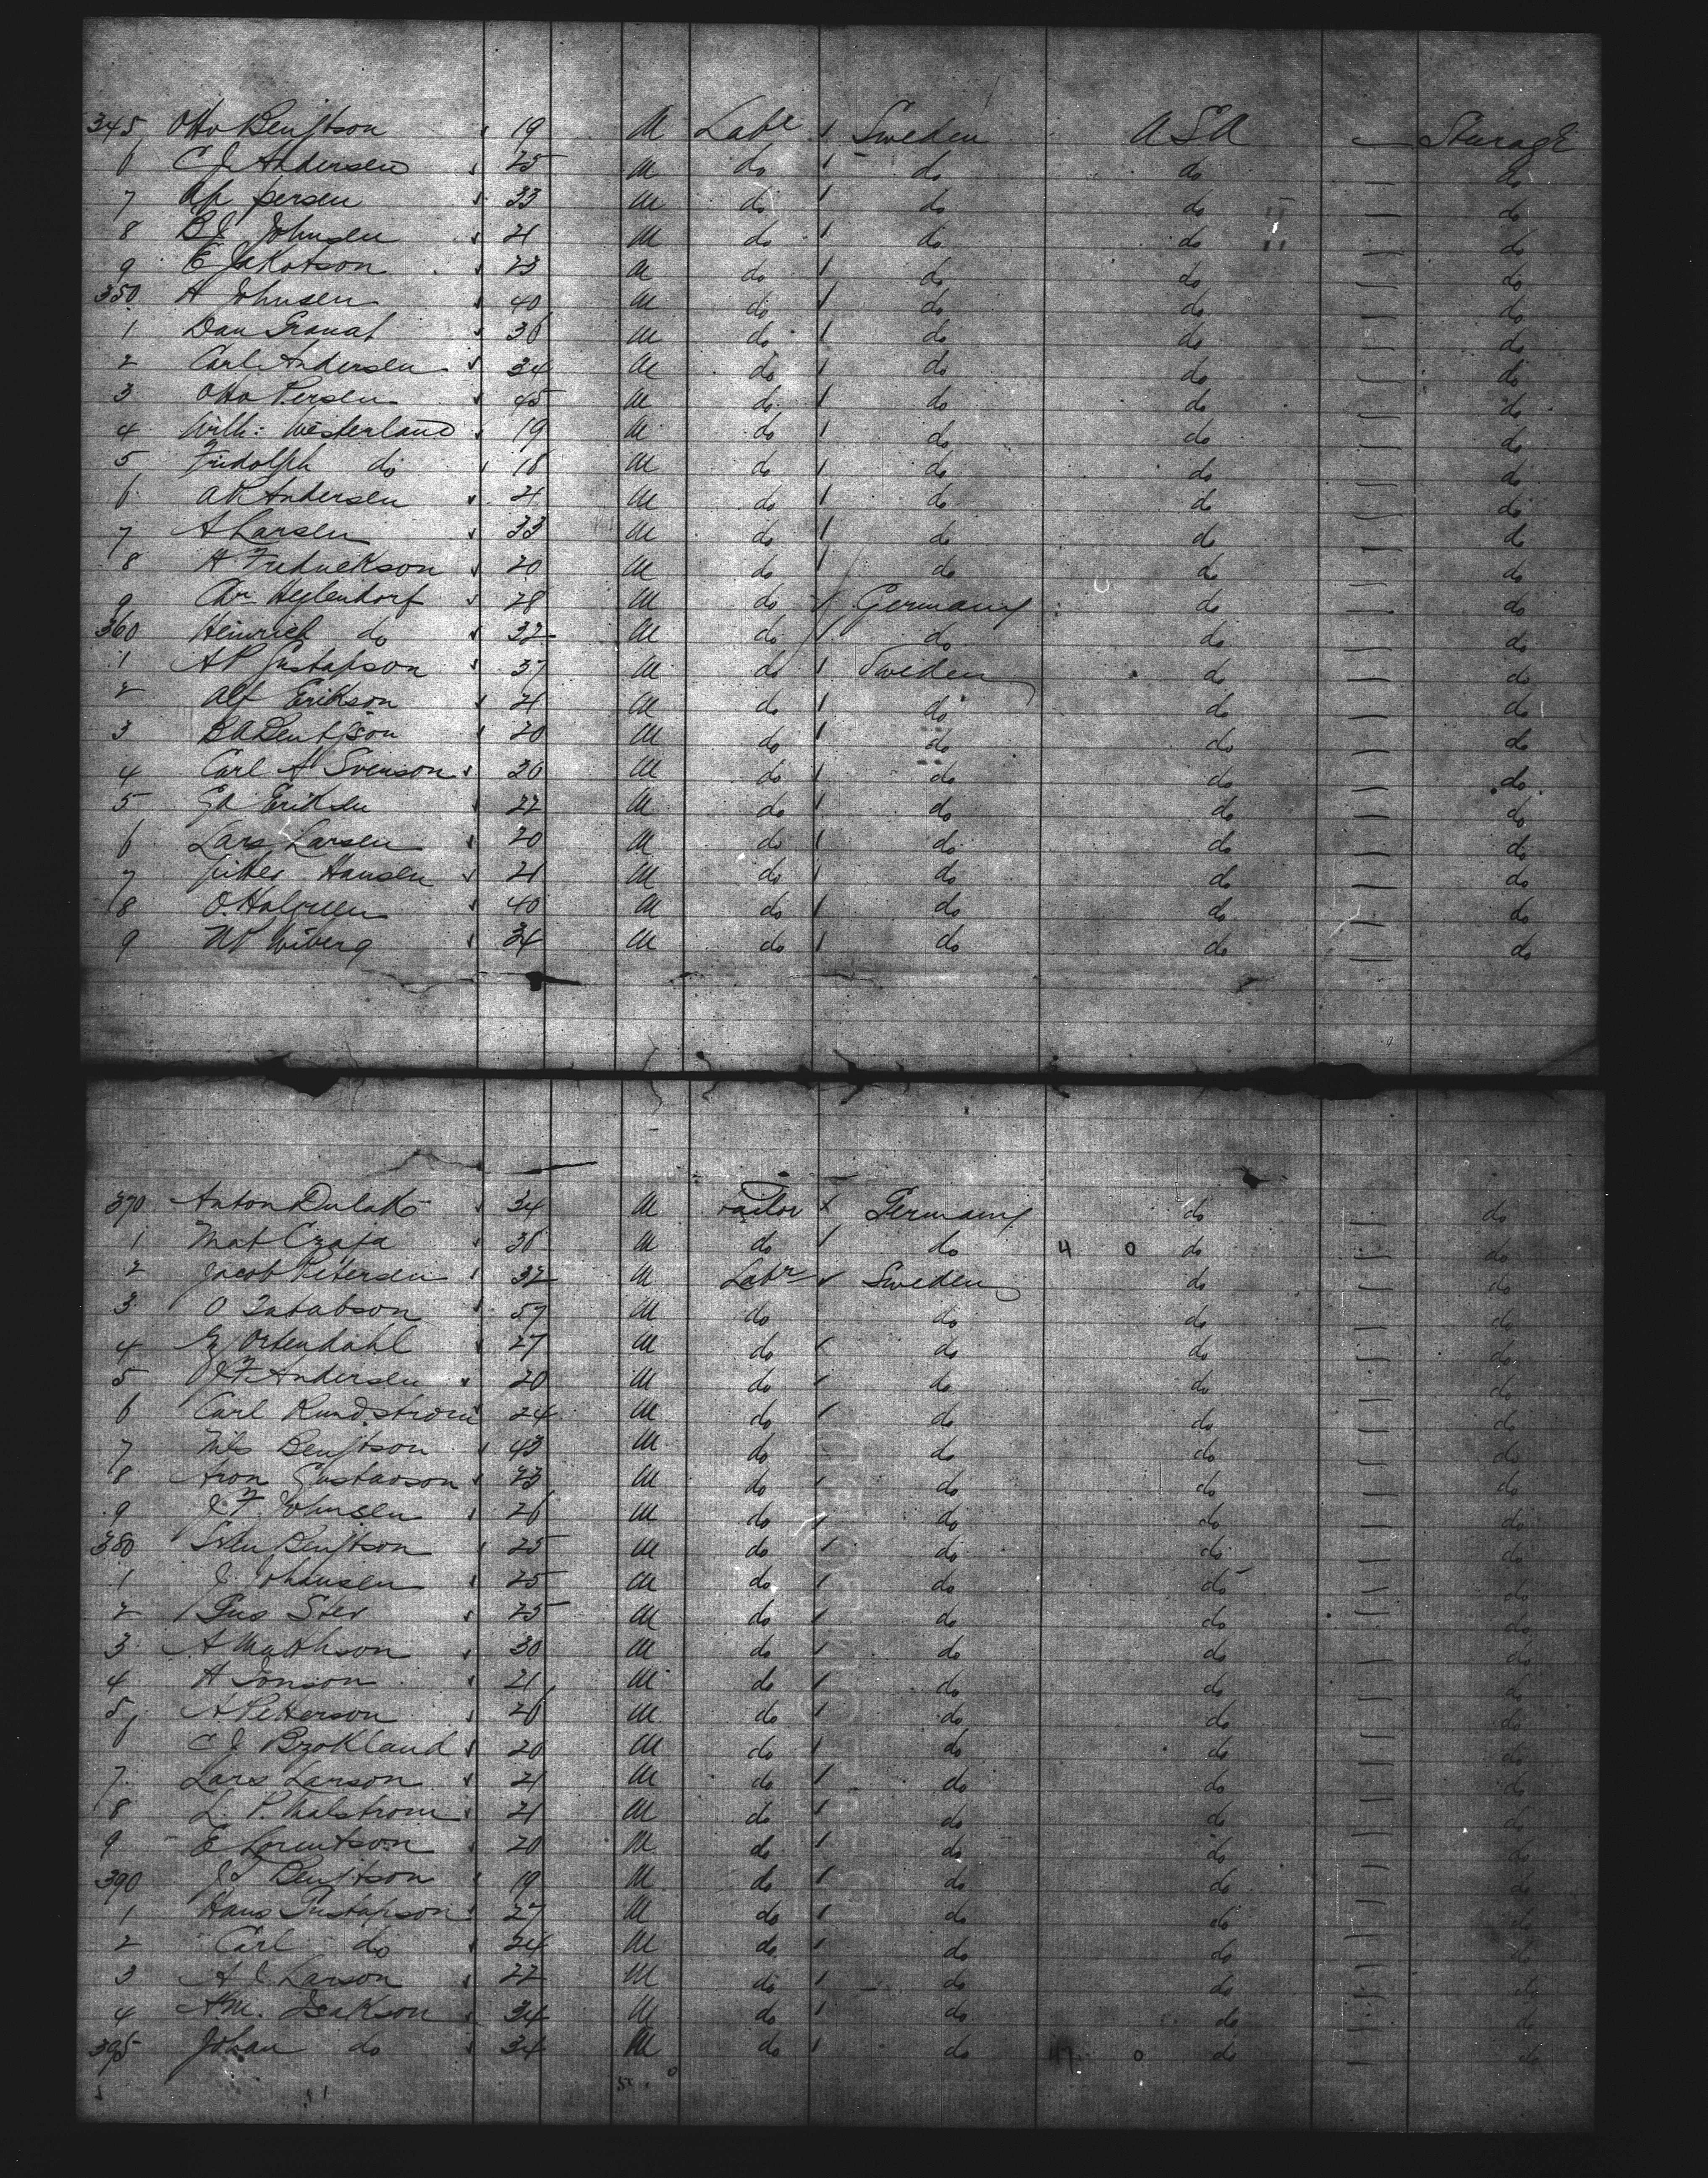 345 Otto Bengtson 19 M Labr Sweden USA — Sturage
6 C J Andersen 25 M do do do — do
7 Persen 33 M do do do — do
8 B J Johnsen 21 M do do do — do
9 E Jakobson 23 M do do do — do
350 A Johnsen 40 M do do do — do
1 Dan Granat 36 M do do do — do
2 Carl Andersen 34 M do do do — do
3 Otto Persen 45 M do do do — do
4 Wilh: Westerland 19 M do do do — do
5 Fridolph do 18 M do do do — do
6 A P Andersen 21 M do do do — do
7 A Larsen 33 M do do do — do
8 A Fredrickson 20 M do do do — do
9 Chr Heylendorf 28 M do Germany do — do
360 Heinrich do 32 M do do do — do
1 A P Gustafson 37 M do Sweden do — do
2 Alf Erikson 21 M do do do — do
3 B A Bengtson 20 M do do do — do
4 Carl A Svenson 20 M do do do — do
5 Ed Eriksen 22 M do do do — do
6 Lars Larsen 20 M do do do — do
7 Hansen 21 M do do do — do
8 O. Halgreen 40 M do do do — do
9 N P Wiberg 34 M do do do — do
370 Anton Dulak 34 M Tailor Germany do — do
1 Mat Czaja 36 M do do 4 0 do — do
2 Jacob Petersen 32 M Labr Sweden do — do
3 O 57 M do do do — do
4 Ortendahl 27 M do do do — do
5 J F Andersen 20 M do do do — do
6 Carl Rundstrom 24 M do do do — do
7 Nils Bengtson 43 M do do do — do
8 Aron Gustavson 23 M do do do — do
9 J. F. Johnsen 26 M do do do — do
380 Sven Bengtson 25 M do do do — do
1 J. Johansen 25 M do do do — do
2 Gus Ster 25 M do do do — do
3 A Mathson 30 M do do do — do
4 A Jonson 21 M do do do — do
5 A Petterson 26 M do do do — do
6 C J Brokland 20 M do do do — do
7 Lars Larson 21 M do do do — do
8 L. P. Malstrom 21 M do do do — do
9 E Lorentson 20 M do do do — do
390 Bengtson 19 M do do do — do
1 Hans Gustafson 27 M do do do — do
2 Carl do 24 M do do do — do
3 A J Larson 22 M do do do — do
4 A M. Isakson 34 M do do do — do
395 Johan do 34 M do do do — do